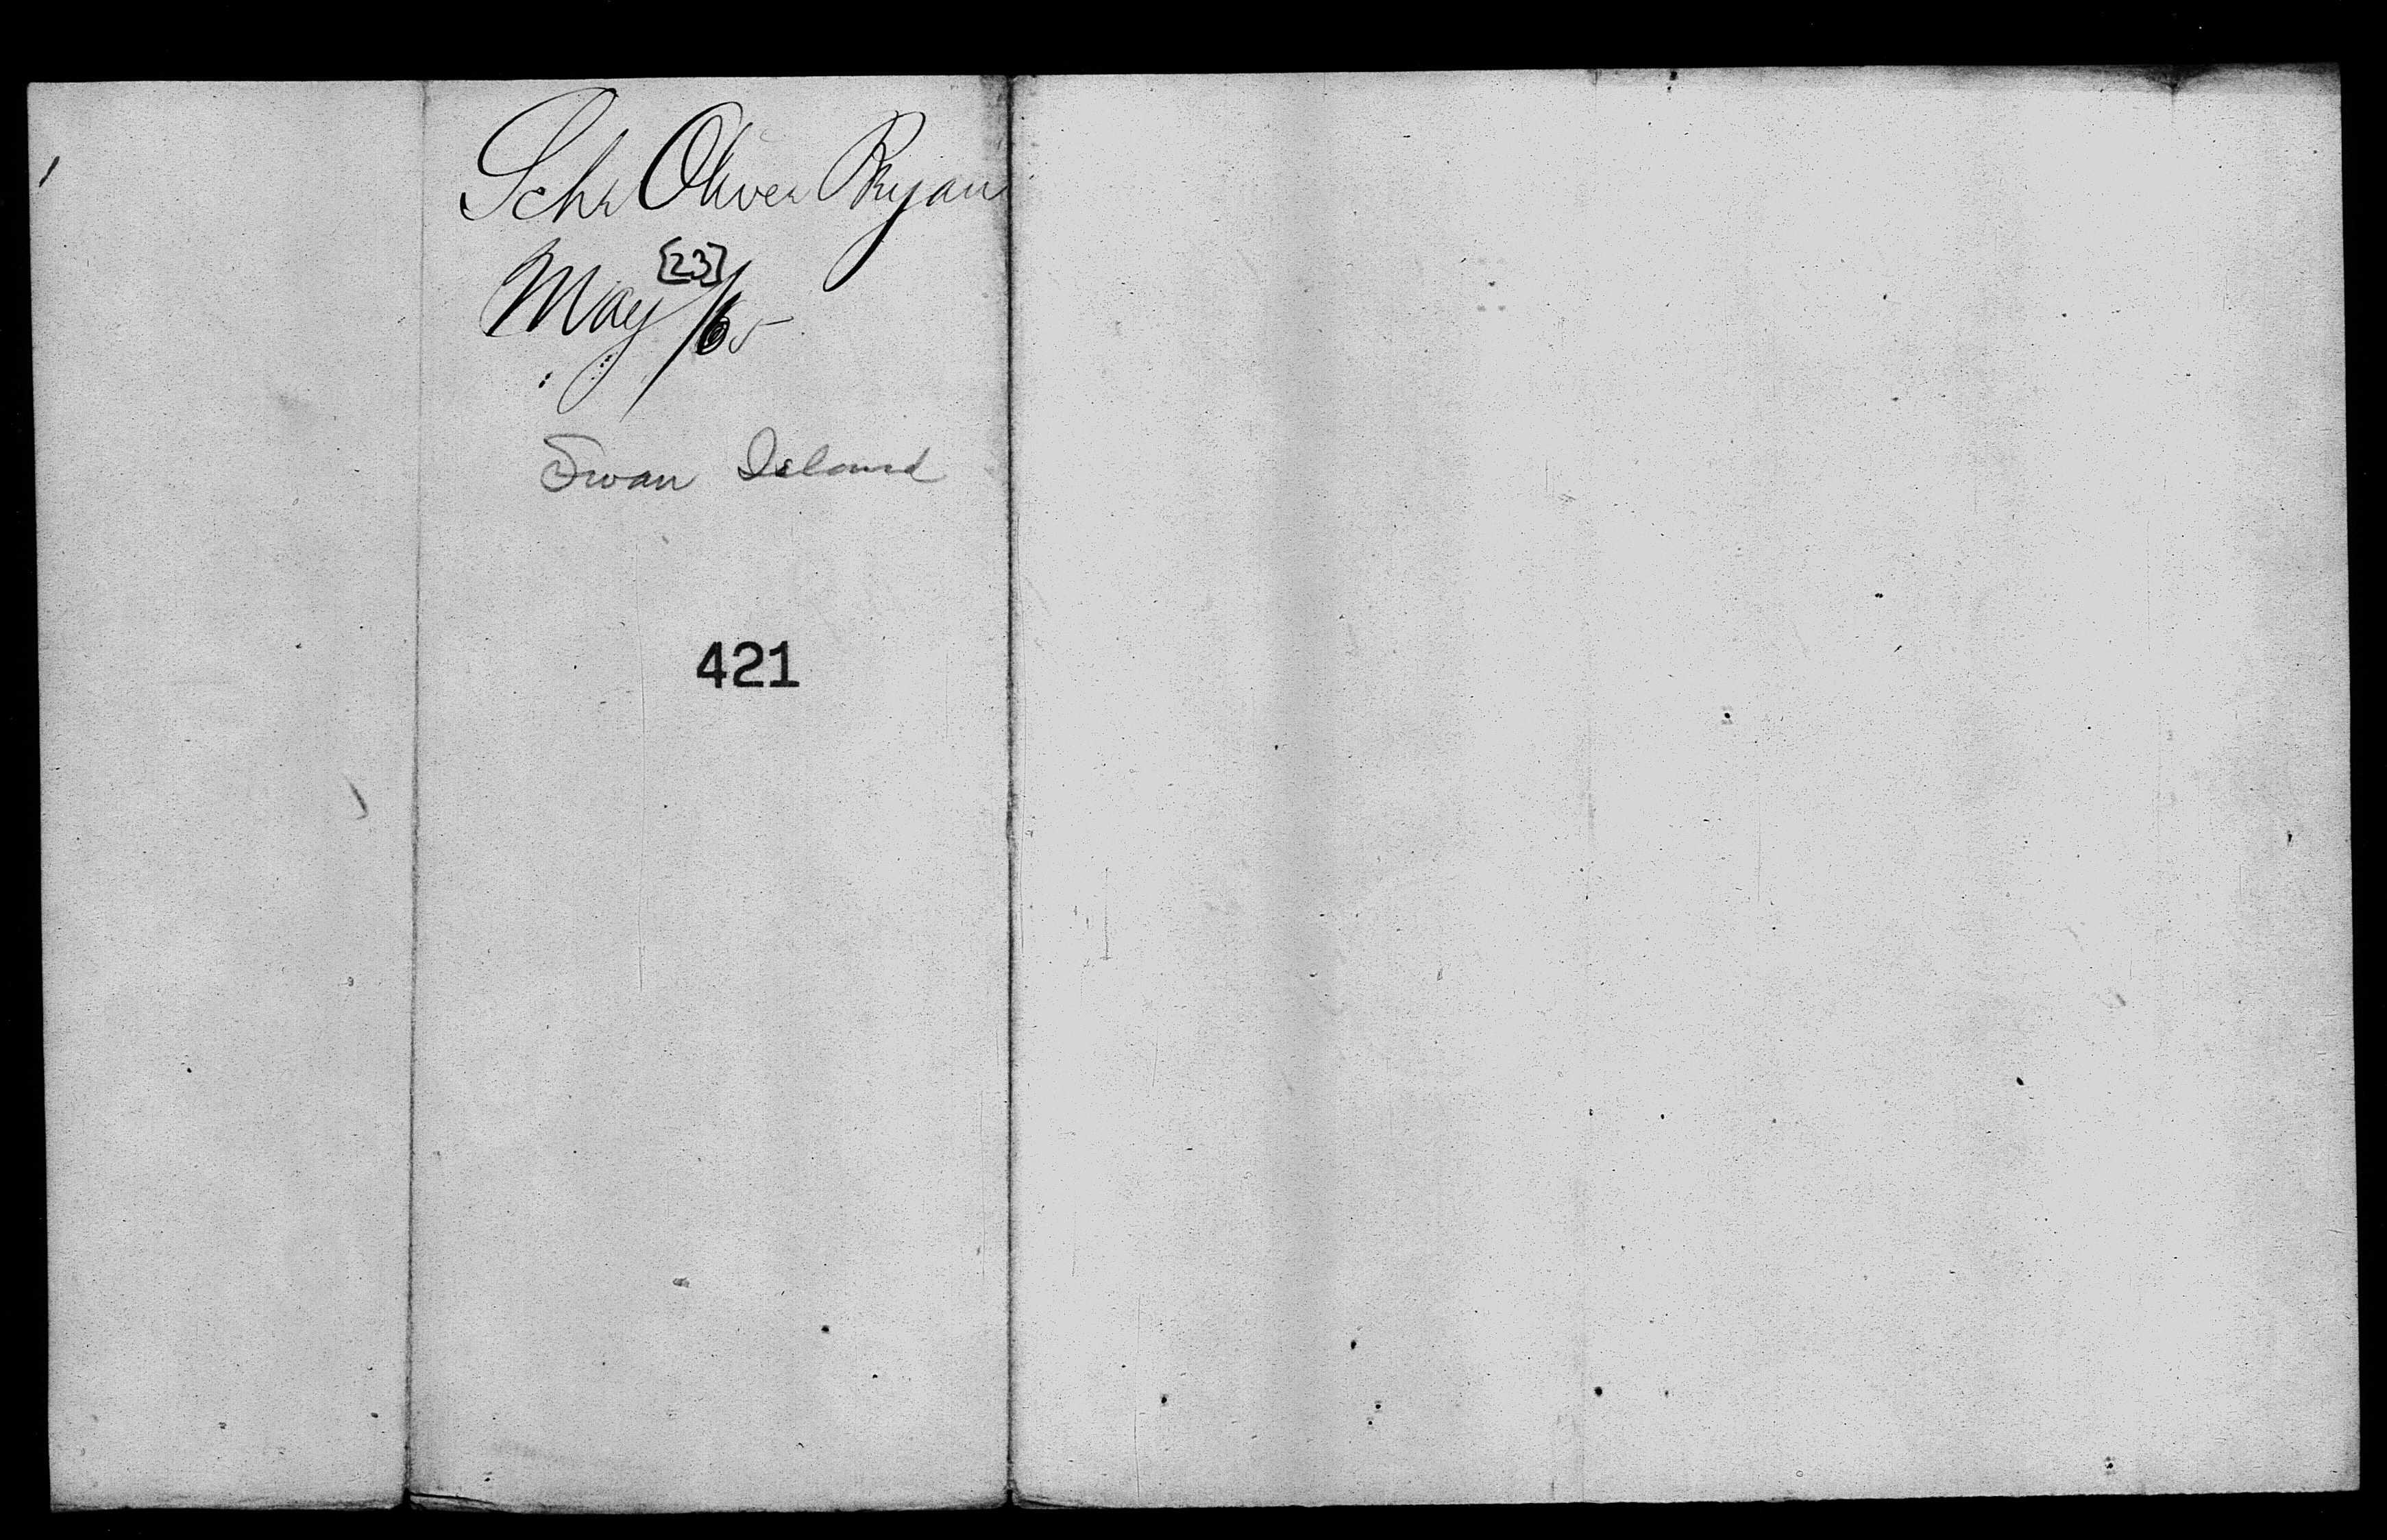 Schr Oliver Bryan
May [23] /65
Swan Island
421